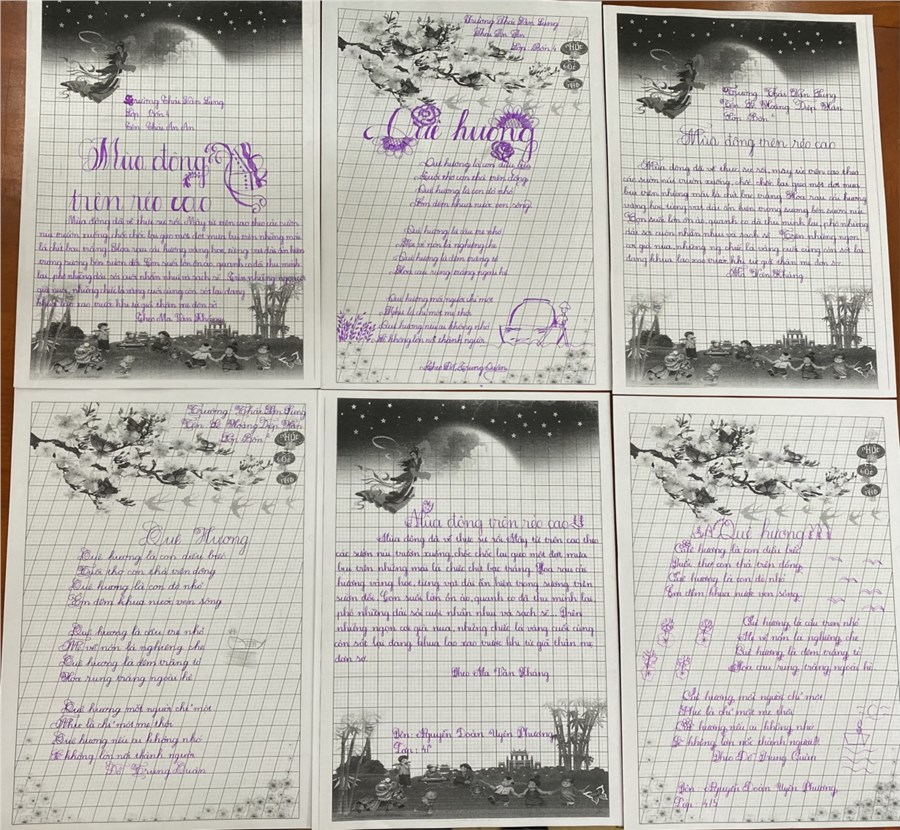 Trường Thái Văn Lung
Lớp Bốn 4
Tên Thái An An
Mùa đông
trên rẻo cao
Mùa đông đã về thực sự rồi. Mây từ trên cao theo các sườn
núi trườn xuống, chốc chốc lại gieo một đợt mưa bụi trên những mái
lá chít bạc trắng. Hoa rau cải hương vàng hoe, từng vạt dài ẩn hiện
trong sương bên sườn đồi. Con suối lớn ồn ào, quanh co đã thu mình
lại, phô những dải sỏi cuội nhẵn nhụi và sạch sẽ. Trên những ngọn cơi
già nua, những chiếc lá vàng cuối cùng còn sót lại đang
khua lao xao trước khi từ giã thân mẹ đơn sơ.
Theo Ma Văn Kháng
Trường Thái Văn Lung
Thái An An
Lớp Bốn 4
HỌC
CÓC
NHO
Quê hương
Quê hương là con diều biếc
Tuổi thơ con thả trên đồng
Quê hương là con đò nhỏ
Êm đềm khua nước ven sông
Quê hương là cầu tre nhỏ
Mẹ về nón lá nghiêng che
Quê hương là đêm trăng tỏ
Hoa cau rụng trắng ngoài hè
Quê hương mỗi người chỉ một
Như là chỉ một mẹ thôi
Quê hương nếu ai không nhớ
Sẽ không lớn nổi thành người
Theo Đỗ Trung Quân
Trường Thái Văn Lung
Tên Lê Hoàng Diệp Hân
Lớp Bốn
Mùa đông trên rẻo cao
Mùa đông đã về thực sự rồi, mây từ trên cao theo
các sườn núi trườn xuống, chốc chốc lại gieo một đợt mưa
bụi trên những mái lá chít bạc trắng. Hoa rau cải hương
vàng hoe, từng vạt dài ẩn hiện trong sương bên sườn núi.
Con suối lớn ồn ào, quanh co đã thu mình lại, phô những
dải sỏi cuộn nhẵn nhụi và sạch sẽ. Trên những ngọn
cơi già nua, những chiếc lá vàng cuối cùng còn sót lại
đang khua lao xao trước khi từ giã thân mẹ đơn sơ.
Ma Văn Kháng
Trường Thái Văn Lung
Tên Lê Hoàng Diệp Hân
Lớp Bốn
Quê Hương
Quê hương là con diều biếc
Tuổi thơ con thả trên đồng
Quê hương là con đò nhỏ
Êm đềm khua nước ven sông
Quê hương là cầu tre nhỏ
Mẹ về nón lá nghiêng che
Quê hương là đêm trăng tỏ
Hoa rung trắng ngoài hè
Quê hương một người chỉ một
Như là chỉ một mẹ thôi
Quê hương nếu ai không nhớ
Sẽ không lớn nổi thành người
Đỗ Trung Quân
Mùa đông trên rẻo cao
Mùa đông đã về thực sự rồi. Mây từ trên cao theo
các sườn núi trườn xuống, chốc chốc lại gieo một đợt mưa
bụi trên những mái lá chít bạc trắng. Hoa rau cải
hương vàng hoe, từng vạt dài ẩn hiện trong sương trên
sườn đồi. Con suối lớn ồn ào, quanh co đã thu mình lại,
phô những dải sỏi cuội nhẵn nhụi và sạch sẽ. Trên
những ngọn cơi già nua, những chiếc lá vàng cuối cùng
còn sót lại đang khua lao xao trước khi từ giã thân mẹ
đơn sơ.
Theo Ma Văn Kháng
Tên: Nguyễn Đoàn Uyên Phương
Lớp: 4/5
Quê hương
Quê hương là con diều biếc
Tuổi thơ con thả trên đồng
Quê hương là con đò nhỏ
Êm đềm khua nước ven sông
Quê hương là cầu tre nhỏ
Mẹ về nón lá nghiêng che
Quê hương là đêm trăng tỏ
Hoa cau rụng trắng ngoài hè
Quê hương mỗi người chỉ một
Như là chỉ một mẹ thôi
Quê hương nếu ai không nhớ
Sẽ không lớn nổi thành người
Theo Đỗ Trung Quân
Tên: Nguyễn Đoàn Uyên Phương
Lớp: 4/5